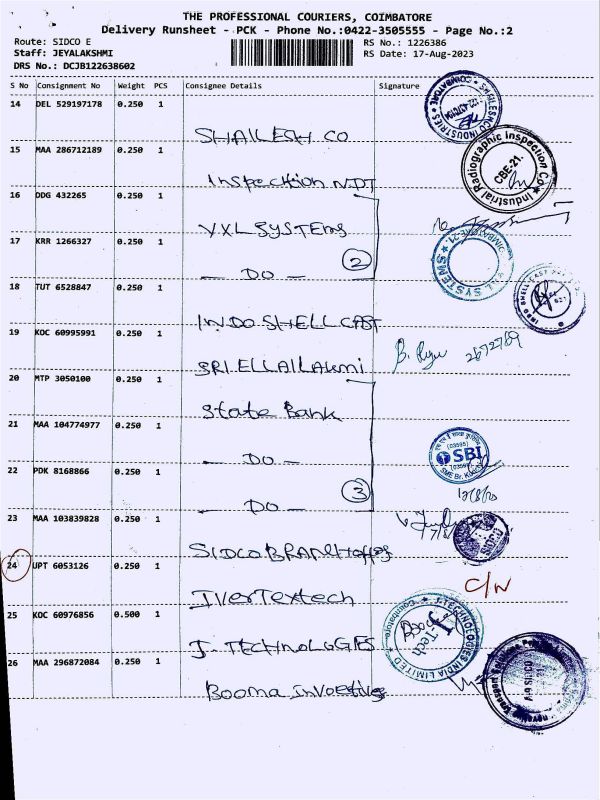 THE PROFESSIONAL COURIERS, COIMBATORE
Delivery Runsheet - PCK - Phone No.:0422-3505555 - Page No.:2
Route: SIDCO E
RS No.: 1226386
Staff: JEYALAKSHMI
RS Date: 17-Aug-2023
DRS No.: DCJB122638602
S No Consignment No Weight PCS Consignee Details Signature
14 DEL 529197178 0.250 1
SHAILESH CO
15 MAA 286712189 0.250 1
Inspection NDT
16 DDG 432265 0.250 1
VXL SYSTEMS
17 KRR 1266327 0.250 1
— DO — 2
18 TUT 6528847 0.250 1
INDO SHELL CAST
19 KOC 60995991 0.250 1
SRI ELLAI LAKSMI
20 MTP 3050100 0.250 1
State Bank
21 MAA 104774977 0.250 1
— DO —
22 PDK 8168866 0.250 1
— DO — 3
23 MAA 103839828 0.250 1
SIDCO BRANCH
24 UPT 6053126 0.250 1
IVerTextech
C/N
25 KOC 60976856 0.500 1
J. TECHNOLOGIES
26 MAA 296872084 0.250 1
Booma
COIMBATORE
INDUSTRIES
Industrial Radiographic Inspection Co
CBE-21.
VXL SYSTEMS
INDO SHELL CAST
2672789
(03595)
SBI
SIDCO
J-TECHNOLOGIES INDIA LIMITED
J-Tech
Coimbatore